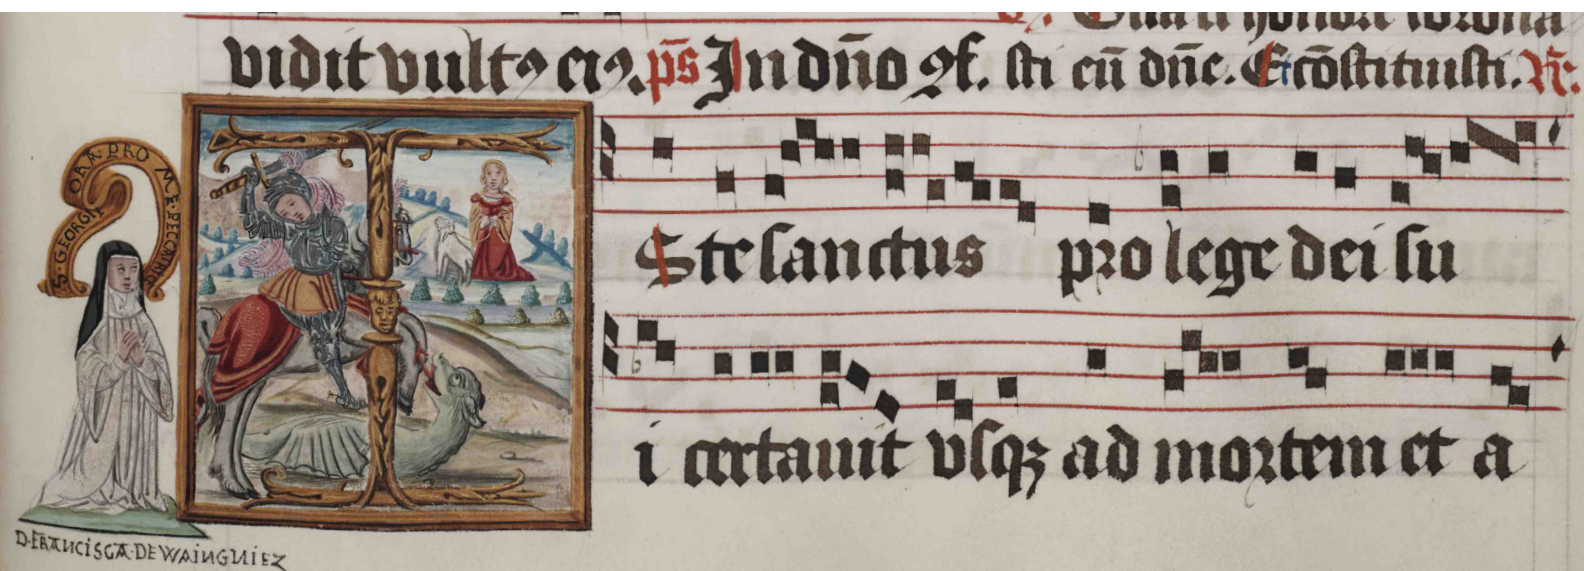 vidit vultꝰ eiꝰ. p̄s In dn̄o ꝯf. sti cū dn̄e. Et cōstituisti. R̄.
S·GEORGI ORA PRO ME PECCATRICE
Iste sanctus pro lege dei su
i certauit vsqꝫ ad mortem et a
D·FRANCISCA·DE WAINGNIEZ